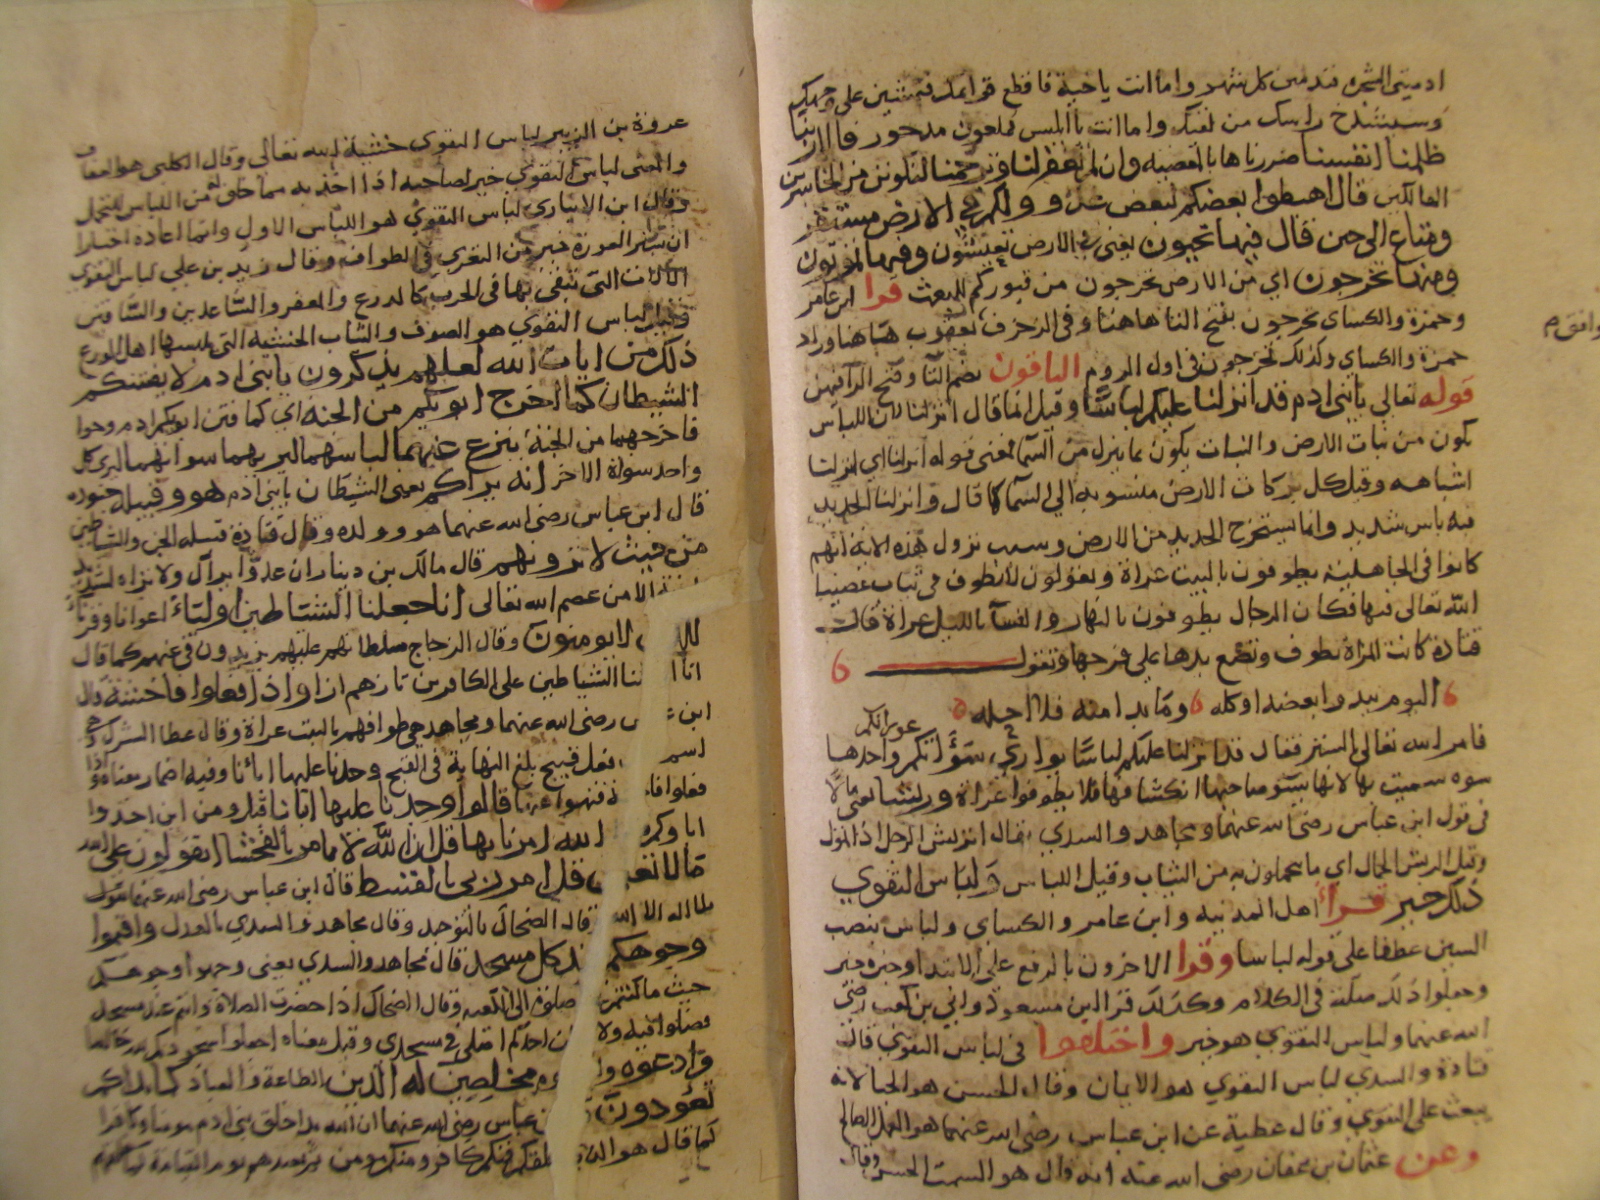 ادميتى الشجرة فتدمين كل شهر واما انت يا حية فاقطع قوايمك فتمشين على وجهك
وسيشدخ راسك من لقيك واما انت يا ابليس فملعون مدحور قالا ربنا
ظلمنا انفسنا ضررناها بالمعصية وان لم تغفر لنا وترحمنا لنكونن من الخاسرين
الهالكين قال اهبطوا بعضكم لبعض عدو ولكم في الارض مستقر
ومتاع الى حين قال فيها تحيون يعني في الارض تعيشون وفيها تموتون
ومنها تخرجون اي من الارض تخرجون من قبوركم للبعث قرا ابن عامر
وحمزة والكساي تخرجون بفتح التا هاهنا وفي الزخرف يعقوب هاهنا وزاد
حمزة والكساي وكذلك تخرجون في اول الروم الباقون بضم التا وفتح الرا فيهن
قوله تعالى يا بنى ادم قد انزلنا عليكم لباسا وقيل انما قال انزلنا لان اللباس
يكون من نبات الارض والنبات يكون بما ينزل من السما فمعنى قوله انزلنا اي انزلنا
اسبابه وقيل كل بركات الارض منسوبة الى السما كما قال وانزلنا الحديد
فيه باس شديد وانما يستخرج الحديد من الارض وسبب نزول هذه الاية انهم
كانوا في الجاهلية يطوفون بالبيت عراة ويقولون لا نطوف في ثياب عصينا
الله تعالى فيها فكان الرجال يطوفون بالنهار والنسا بالليل عراة قال
قتادة كانت المراة تطوف وتضع يدها على فرجها وتقول
اليوم يبدو بعضه او كله وما بدا منه فلا احله
فامر الله تعالى بالستر فقال قد انزلنا عليكم لباسا يواري سؤاتكم واحدها عوراتكم
سوة سميت بها لانها يسؤ صاحبها انكشافها فلا يطوفوا عراة وريشا يعني مالا
في قول ابن عباس رضي الله عنهما ومجاهد والسدي يقال تريش الرجل اذا تمول
وقيل الريش الجمال اي ما يتجملون به من الثياب وقيل اللباس ولباس التقوي
ذلك خير قرا اهل المدينة وابن عامر والكساي ولباس بنصب
السين عطفا على قوله لباسا وقرا الاخرون بالرفع على الابتدا وخبره خير
وجعلوا ذلك صلة في الكلام وكذلك قرا ابن مسعود وابي بن كعب رضي
الله عنهما ولباس التقوي هو خير واختلفوا في لباس التقوي قال
قتادة والسدي لباس التقوي هو الايمان وقال الحسن هو الحيا لانه
يبعث على التقوي وقال عطية عن ابن عباس رضى الله عنهما هو العمل الصالح
وعن عثمان بن عفان رضى الله عنه انه قال هو السمت الحسن وقال
وافق م
عروة بن الزبير لباس التقوي خشية الله تعالى وقال الكلبى هو العفاف
والمعنى لباس التقوي خير لصاحبه اذا اخذ به مما خلق له من اللباس للتجمل
وقال ابن الانباري لباس التقوي هو اللباس الاول وانما اعاده اخبارا
ان ستر العورة خير من التعري في الطواف وقال زيد بن علي لباس التقوي
الالات التى يتقى بها في الحرب كالدرع والمغفر والساعدين والساقين
وقيل لباس التقوي هو الصوف والثياب الخشنة التى يلبسها اهل الورع
ذلك من ايات الله لعلهم يذكرون يا بنى ادم لا يفتننكم
الشيطان كما اخرج ابويكم من الجنة اي كما فتن ابويكم ادم وحوا
فاخرجهما من الجنة ينزع عنهما لباسهما ليريهما سواتهما ليري كل
واحد سوأة الاخر انه يراكم يعني الشيطان يا بنى ادم هو وقبيله جنوده
قال ابن عباس رضى الله عنهما هو وولده وقال قتادة قبيله الجن والشياطين
من حيث لا ترونهم قال مالك بن دينار ان عدوا يراك ولا تراه لشديد
الا من عصم الله تعالى انا جعلنا الشياطين اولياء اعوانا وقرناء
للـ لا يومنون وقال الزجاج سلطانهم عليهم يزيدون في غيهم كما قال
انا ـلنا الشياطين على الكافرين تازهم ازا واذا فعلوا فاحشة قال
ابن عـ س رضى الله عنهما ومجاهد هي طوافهم بالبيت عراة وقال عطا الشرك وهي
اسم فعل قبيح بلغ النهاية في القبح وجدنا عليها اباءنا وفيه اضمار معناه واذا
فعلوا فا فنهوا عنها قالوا وجدنا عليها ابانا قيل ومن اين اخذوا
اباوكم الله امرنا بها قل ان الله لا يامر بالفحشا اتقولون على الله
ما لا تعلمـ ن قل امر ربى بالقسط قال ابن عباس رضى الله عنهما بقول
لا اله الا الله قال الضحاك بالتوحيد وقال مجاهد والسدي بالعدل واقيموا
وجوهكم عند كل مسجد قال مجاهد والسدي يعنى وجهوا وجوهكم
حيث ما كنتم صلوة الى الكعبة وقال الضحاك اذا حضرت الصلاة وانتم عند مسجد
فصلوا فيه ولا ن احدكم اصلى في مسجدي وقيل معناه اجعلوا سجودكم لله خالصا
وادعوه وا مخلصين له الدين الطاعة والعبادة كما بداكم
تعودون ـن عباس رضى الله عنهما ان الله بدا خلق بنى ادم مومنا وكافرا
كما قال هو الذ لقكم فمنكم كافر ومنكم مومن ثم يعيدهم يوم القيامة كما